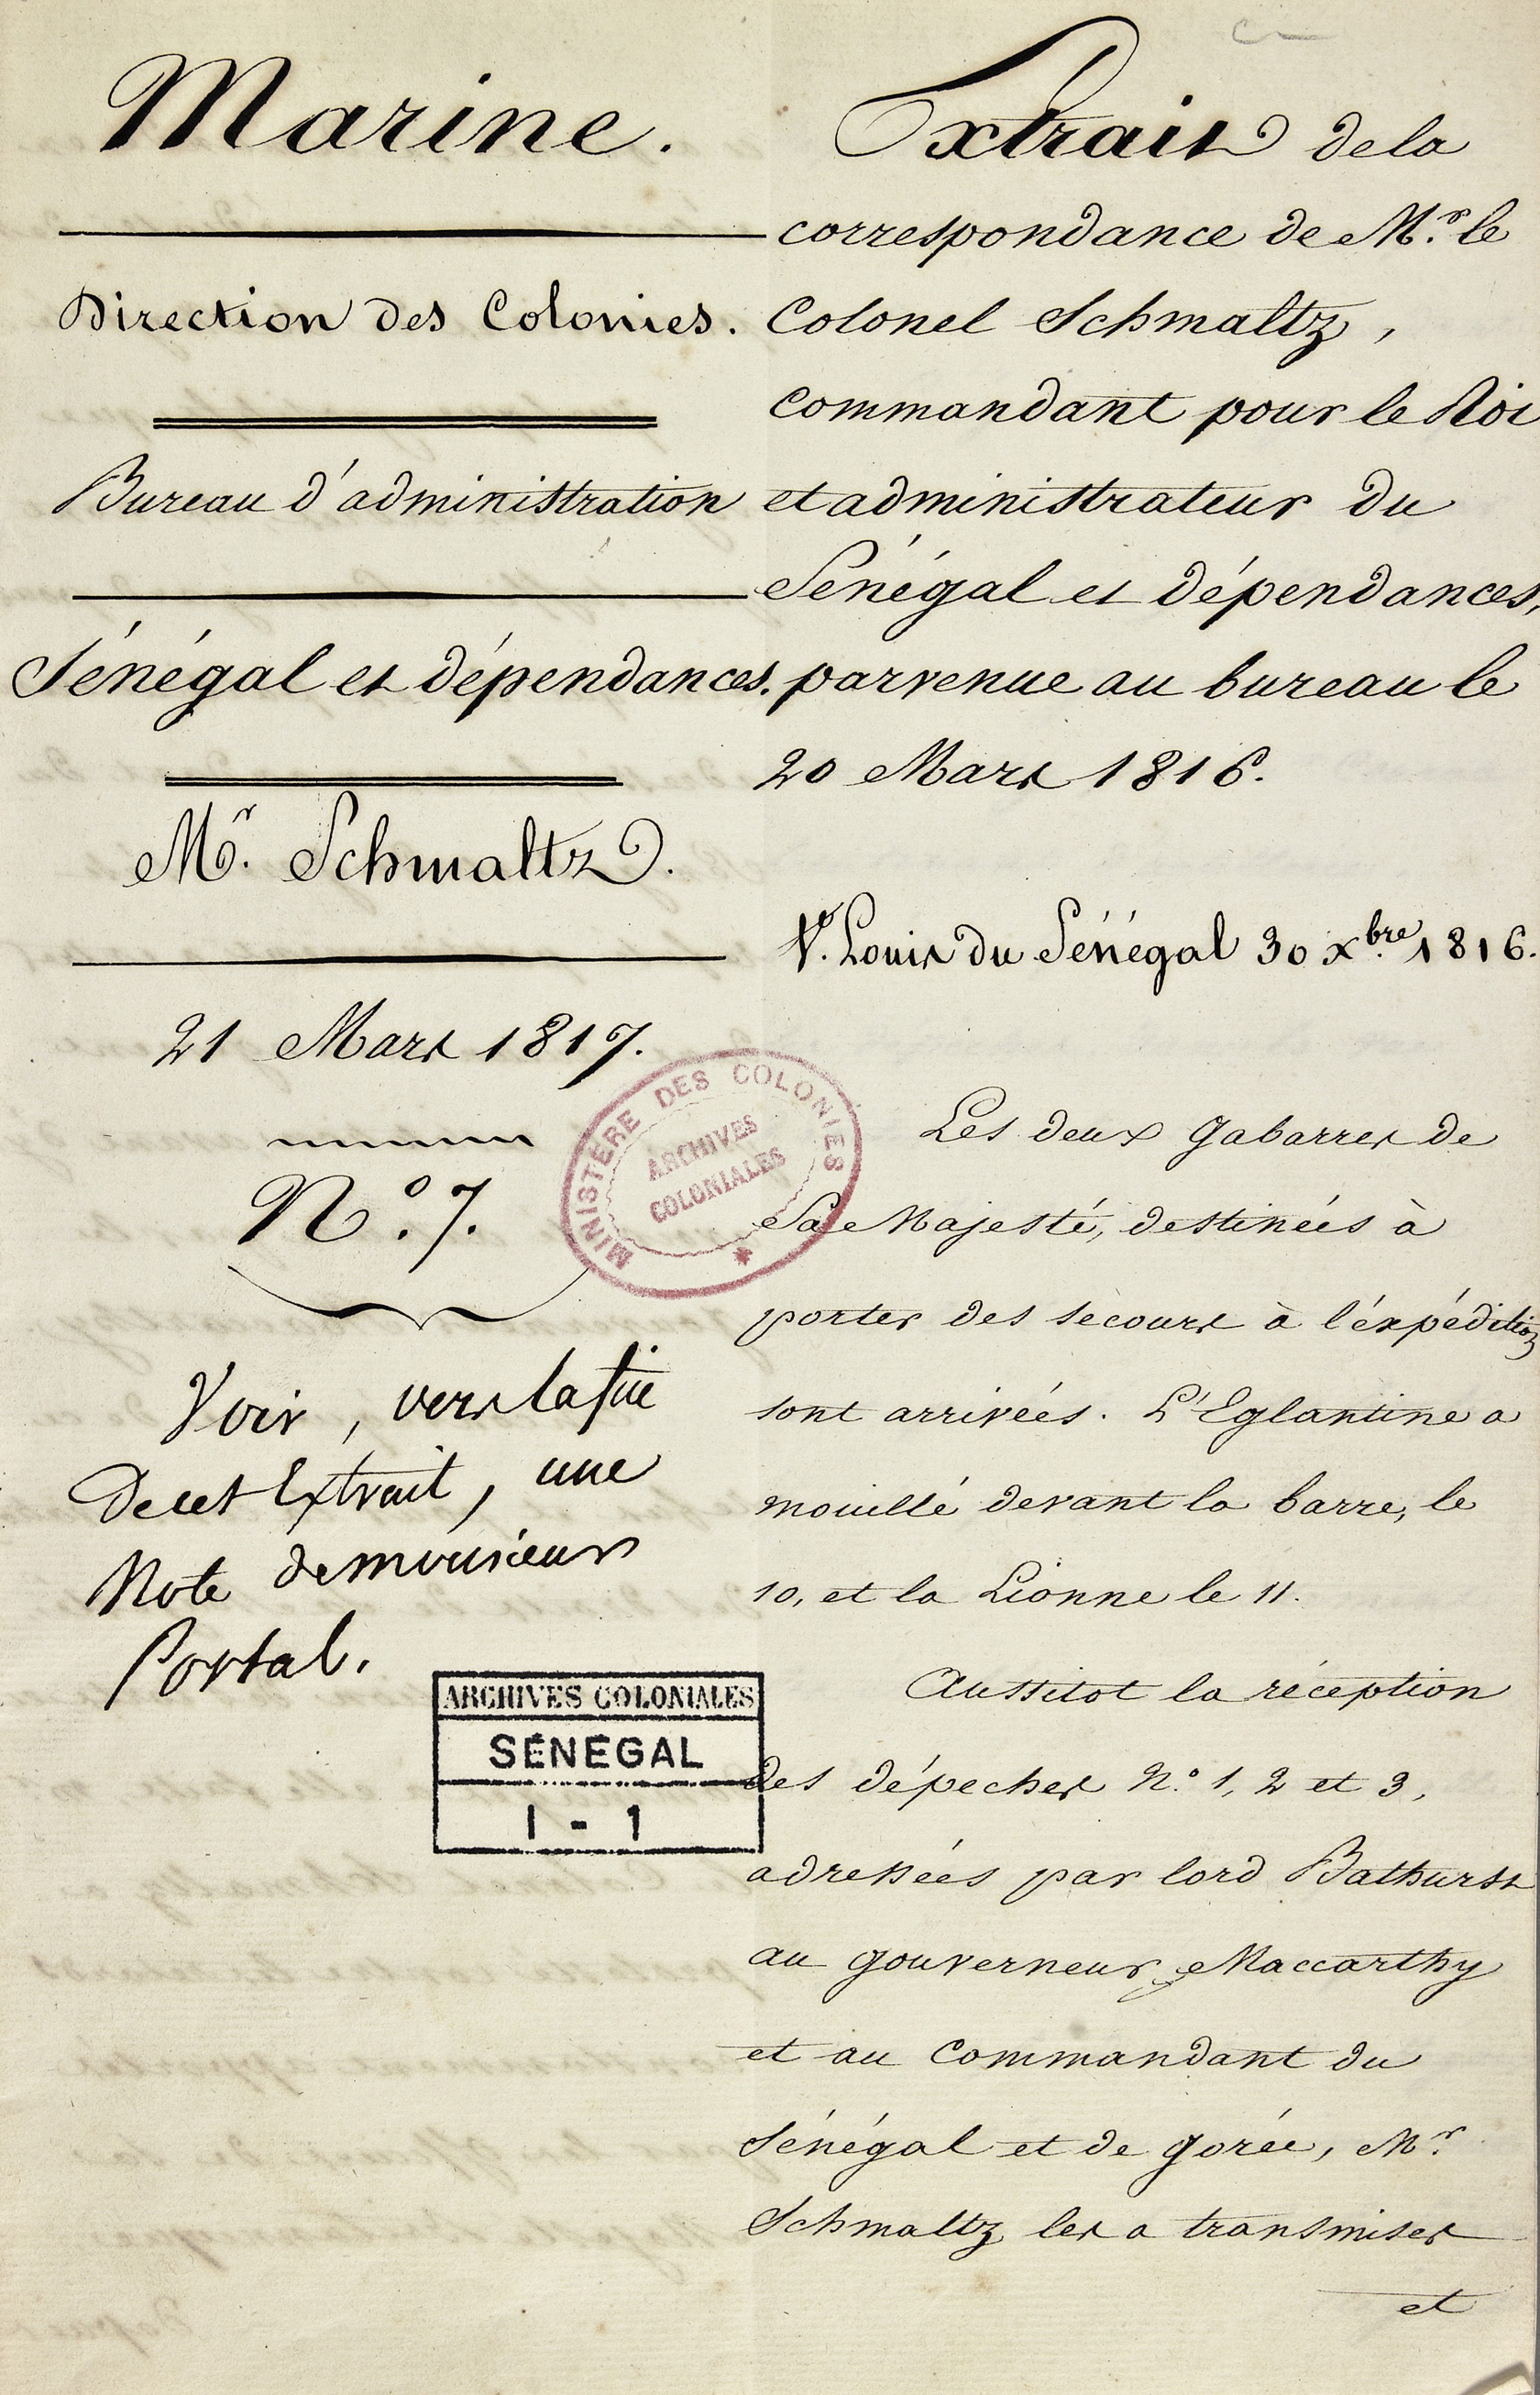 Marine.
Direction des Colonies.
Bureau d'administration
Sénégal et dépendances.
Mr. Schmaltz.
21 Mars 1817.
N.º 7.
Voir, vers la fin
de cet Extrait, une
Note de monsieur
Portal.
MINISTÈRE DES COLONIES
ARCHIVES
COLONIALES
ARCHIVES COLONIALES
SÉNÉGAL
1 - 1
Extrait de la
correspondance de Mr. le
Colonel Schmaltz,
Commandant pour le Roi
et administrateur du
Sénégal et dépendances,
parvenue au bureau le
20 Mars 1816.
St. Louis du Sénégal 30 Xbre. 1816.
Les deux gabarres de
Sa Majesté, destinées à
porter des secours à l'éxpédition
sont arrivées. L'Eglantine a
mouillé devant la barre, le
10, et la Lionne le 11.
Aussitot la réception
des dépeches N.º 1, 2 et 3,
adressées par lord Bathurst
au gouverneur Maccarthy
et au Commandant du
Sénégal et de Gorée, Mr.
Schmaltz les a transmises
et